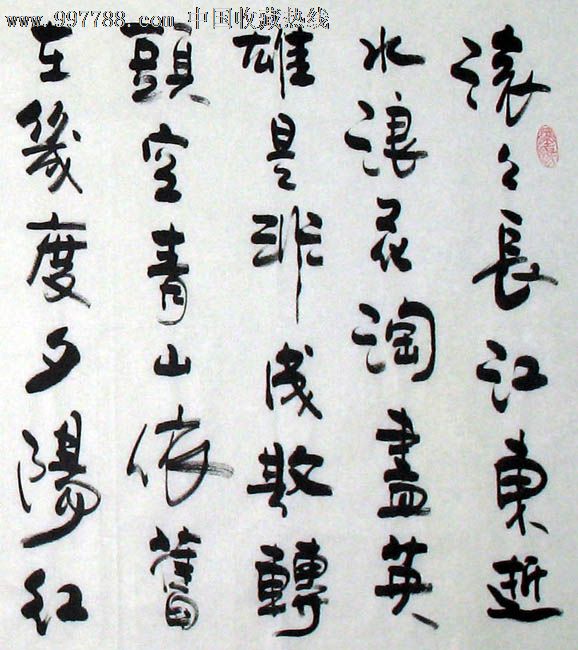 www.997788.com 中国收藏热线
滚々長江東逝
水浪花淘盡英
雄是非成敗轉
頭空青山依舊
在幾度夕陽紅